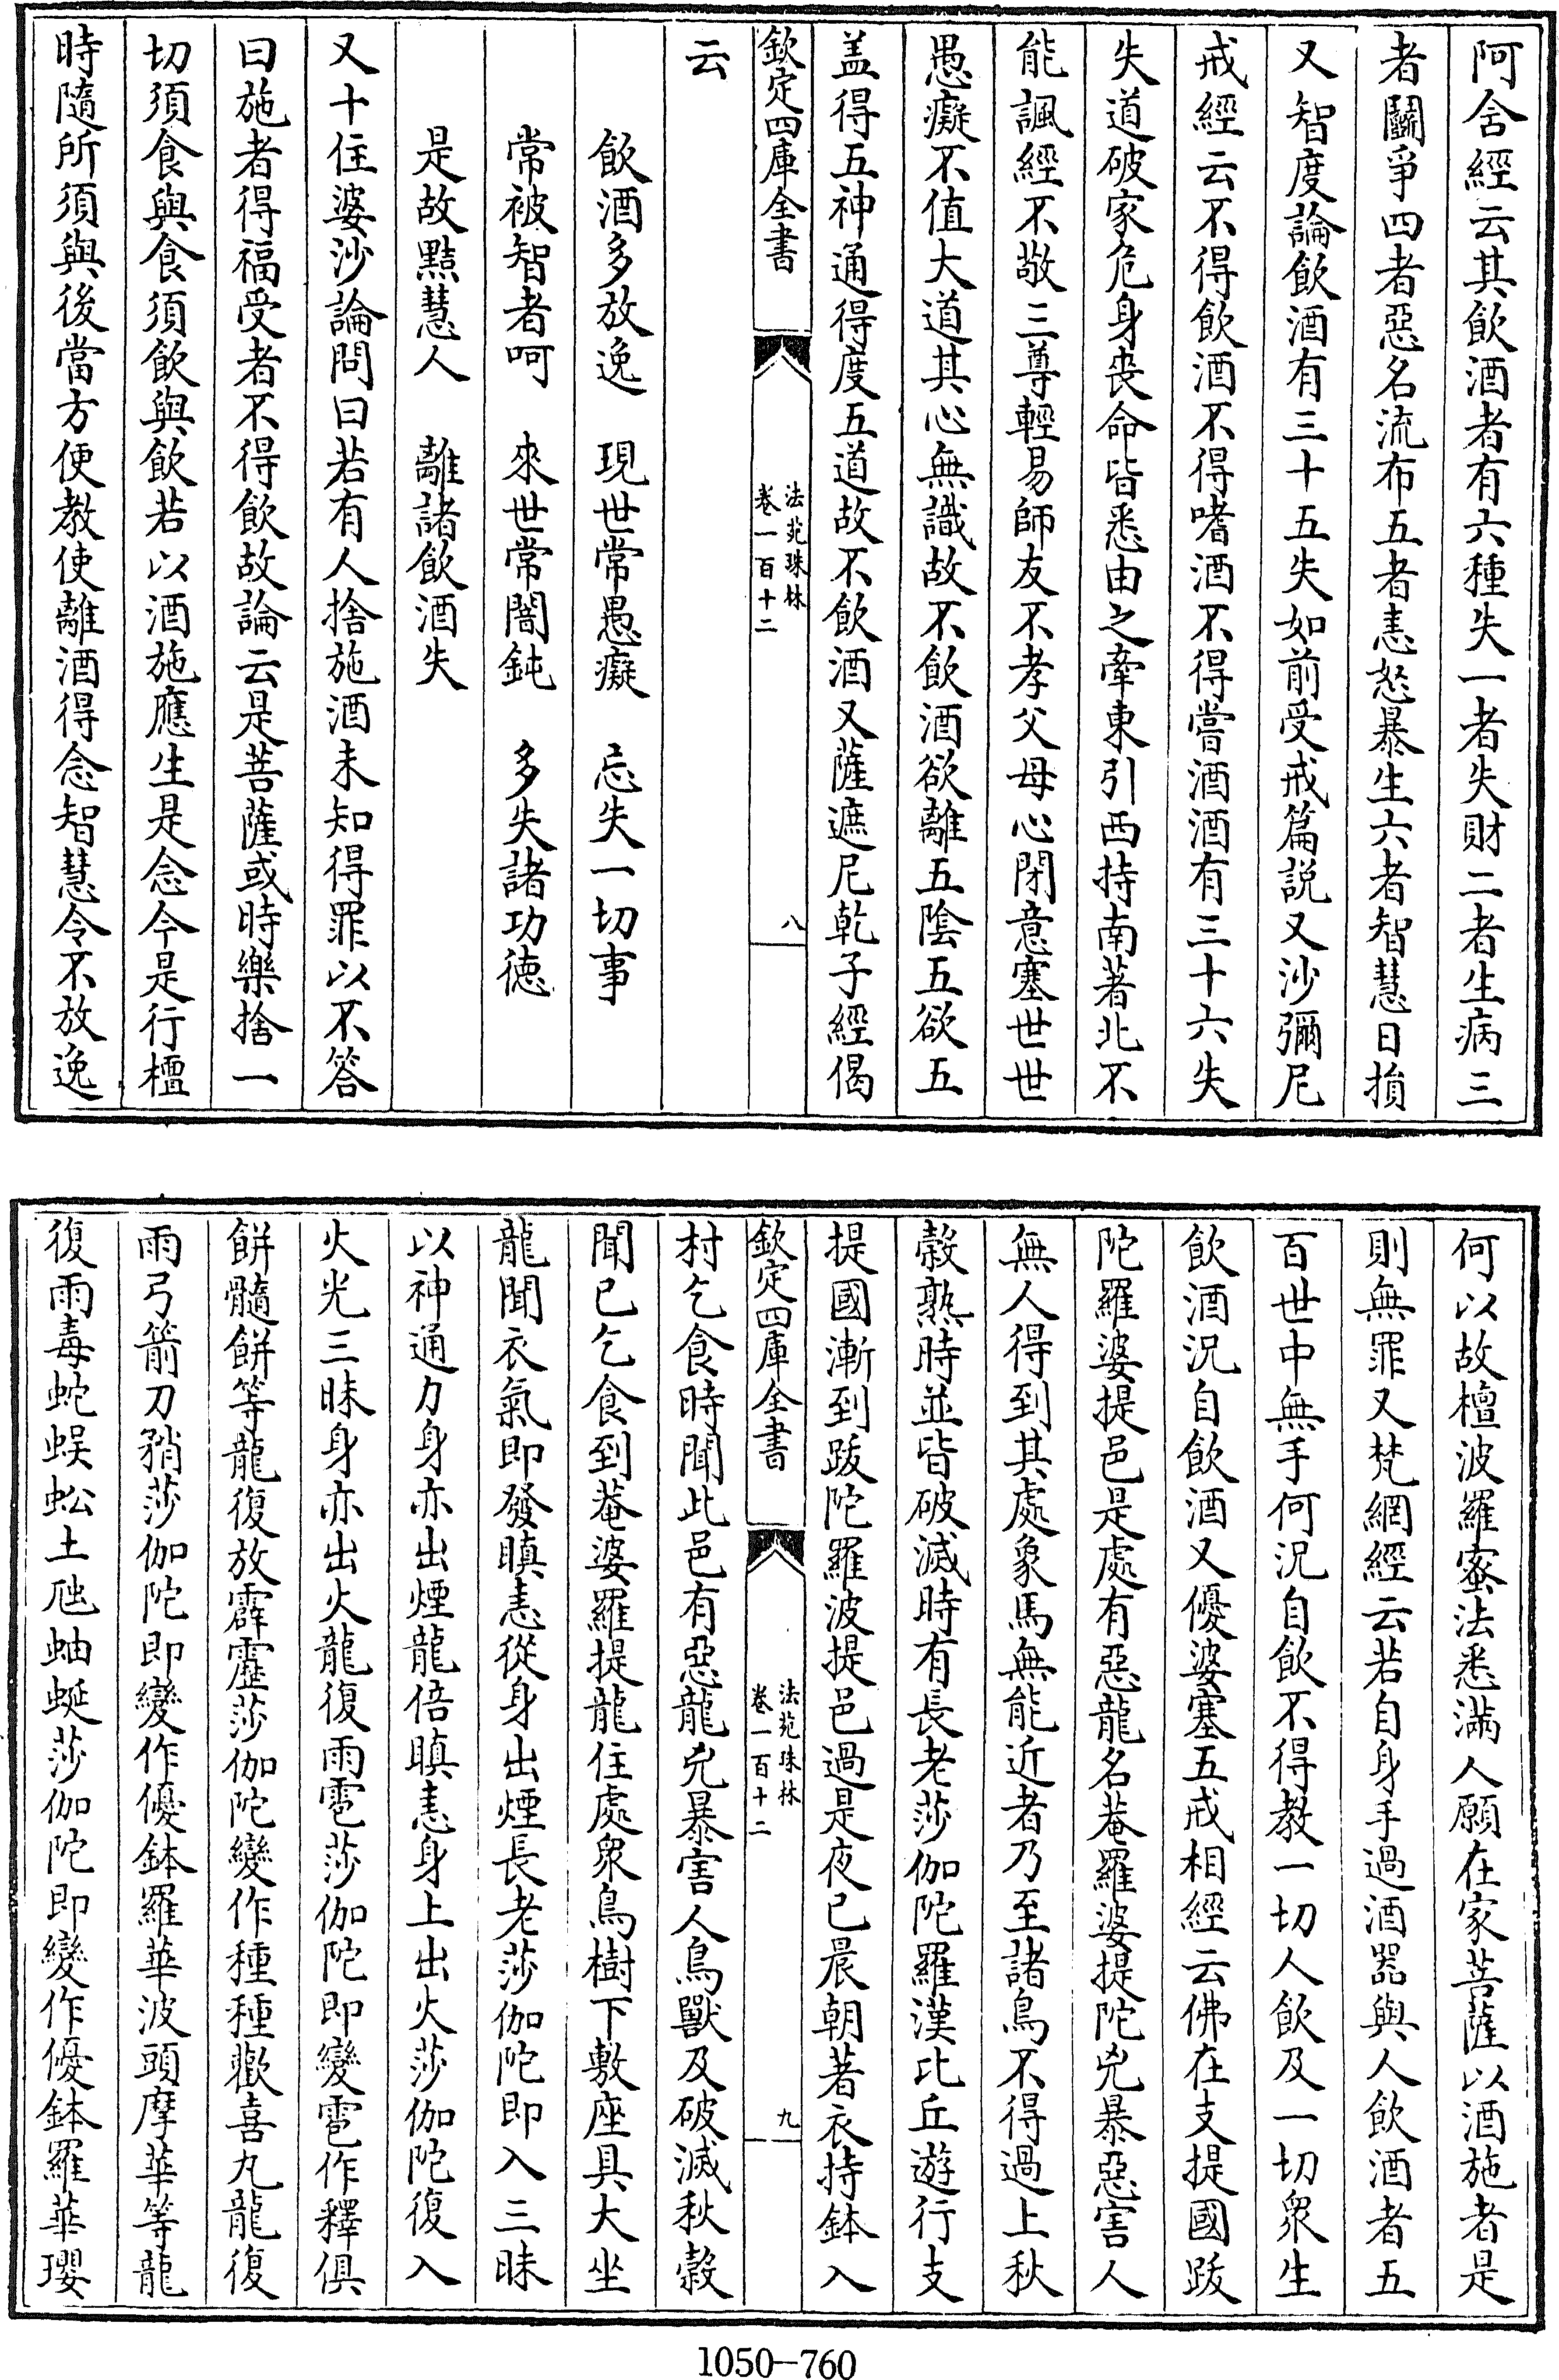 阿含經云其飲酒者有六種失一者失財二者生病三
者鬭爭四者惡名流布五者恚怒暴生六者智慧日損
又智度論飲酒有三十五失如前受戒篇説又沙彌尼
戒經云不得飲酒不得嗜酒不得嘗酒酒有三十六失
失道破家危身喪命皆悉由之牽東引西持南著北不
能諷經不敬三尊輕易師友不孝父母心閉意塞世世
愚癡不值大道其心無識故不飲酒欲離五陰五欲五
盖得五神通得度五道故不飲酒又薩遮尼乾子經偈
欽定四庫全書
法苑珠林
卷一百十二
八
云
飲酒多放逸　現世常愚癡　忘失一切事
常被智者呵　來世常闇鈍　多失諸功徳
是故黠慧人　離諸飲酒失
又十住婆沙論問曰若有人捨施酒未知得罪以不答
曰施者得福受者不得飲故論云是菩薩或時樂捨一
切須食與食須飲與飲若以酒施應生是念今是行檀
時隨所須與後當方便教使離酒得念智慧令不放逸
何以故檀波羅蜜法悉滿人願在家菩薩以酒施者是
則無罪又梵網經云若自身手過酒器與人飲酒者五
百世中無手何況自飲不得教一切人飲及一切衆生
飲酒況自飲酒又優婆塞五戒相經云佛在支提國跋
陀羅婆提邑是處有惡龍名菴羅婆提陀兇暴惡害人
無人得到其處象馬無能近者乃至諸鳥不得過上秋
穀熟時並皆破滅時有長老莎伽陀羅漢比丘遊行支
提國漸到跋陀羅波提邑過是夜已晨朝著衣持鉢入
欽定四庫全書
法苑珠林
卷一百十二
九
村乞食時聞此邑有惡龍兇暴害人鳥獸及破滅秋穀
聞已乞食到菴婆羅提龍住處衆鳥樹下敷座具大坐
龍聞衣氣即發瞋恚從身出煙長老莎伽陀即入三昧
以神通力身亦出煙龍倍瞋恚身上出火莎伽陀復入
火光三昧身亦出火龍復雨雹莎伽陀即變雹作釋俱
餅髓餅等龍復放霹靂莎伽陀變作種種歡喜丸龍復
雨弓箭刀矟莎伽陀即變作優鉢羅華波頭摩華等龍
復雨毒蛇蜈蚣土虺蚰蜒莎伽陀即變作優鉢羅華瓔
1050-760